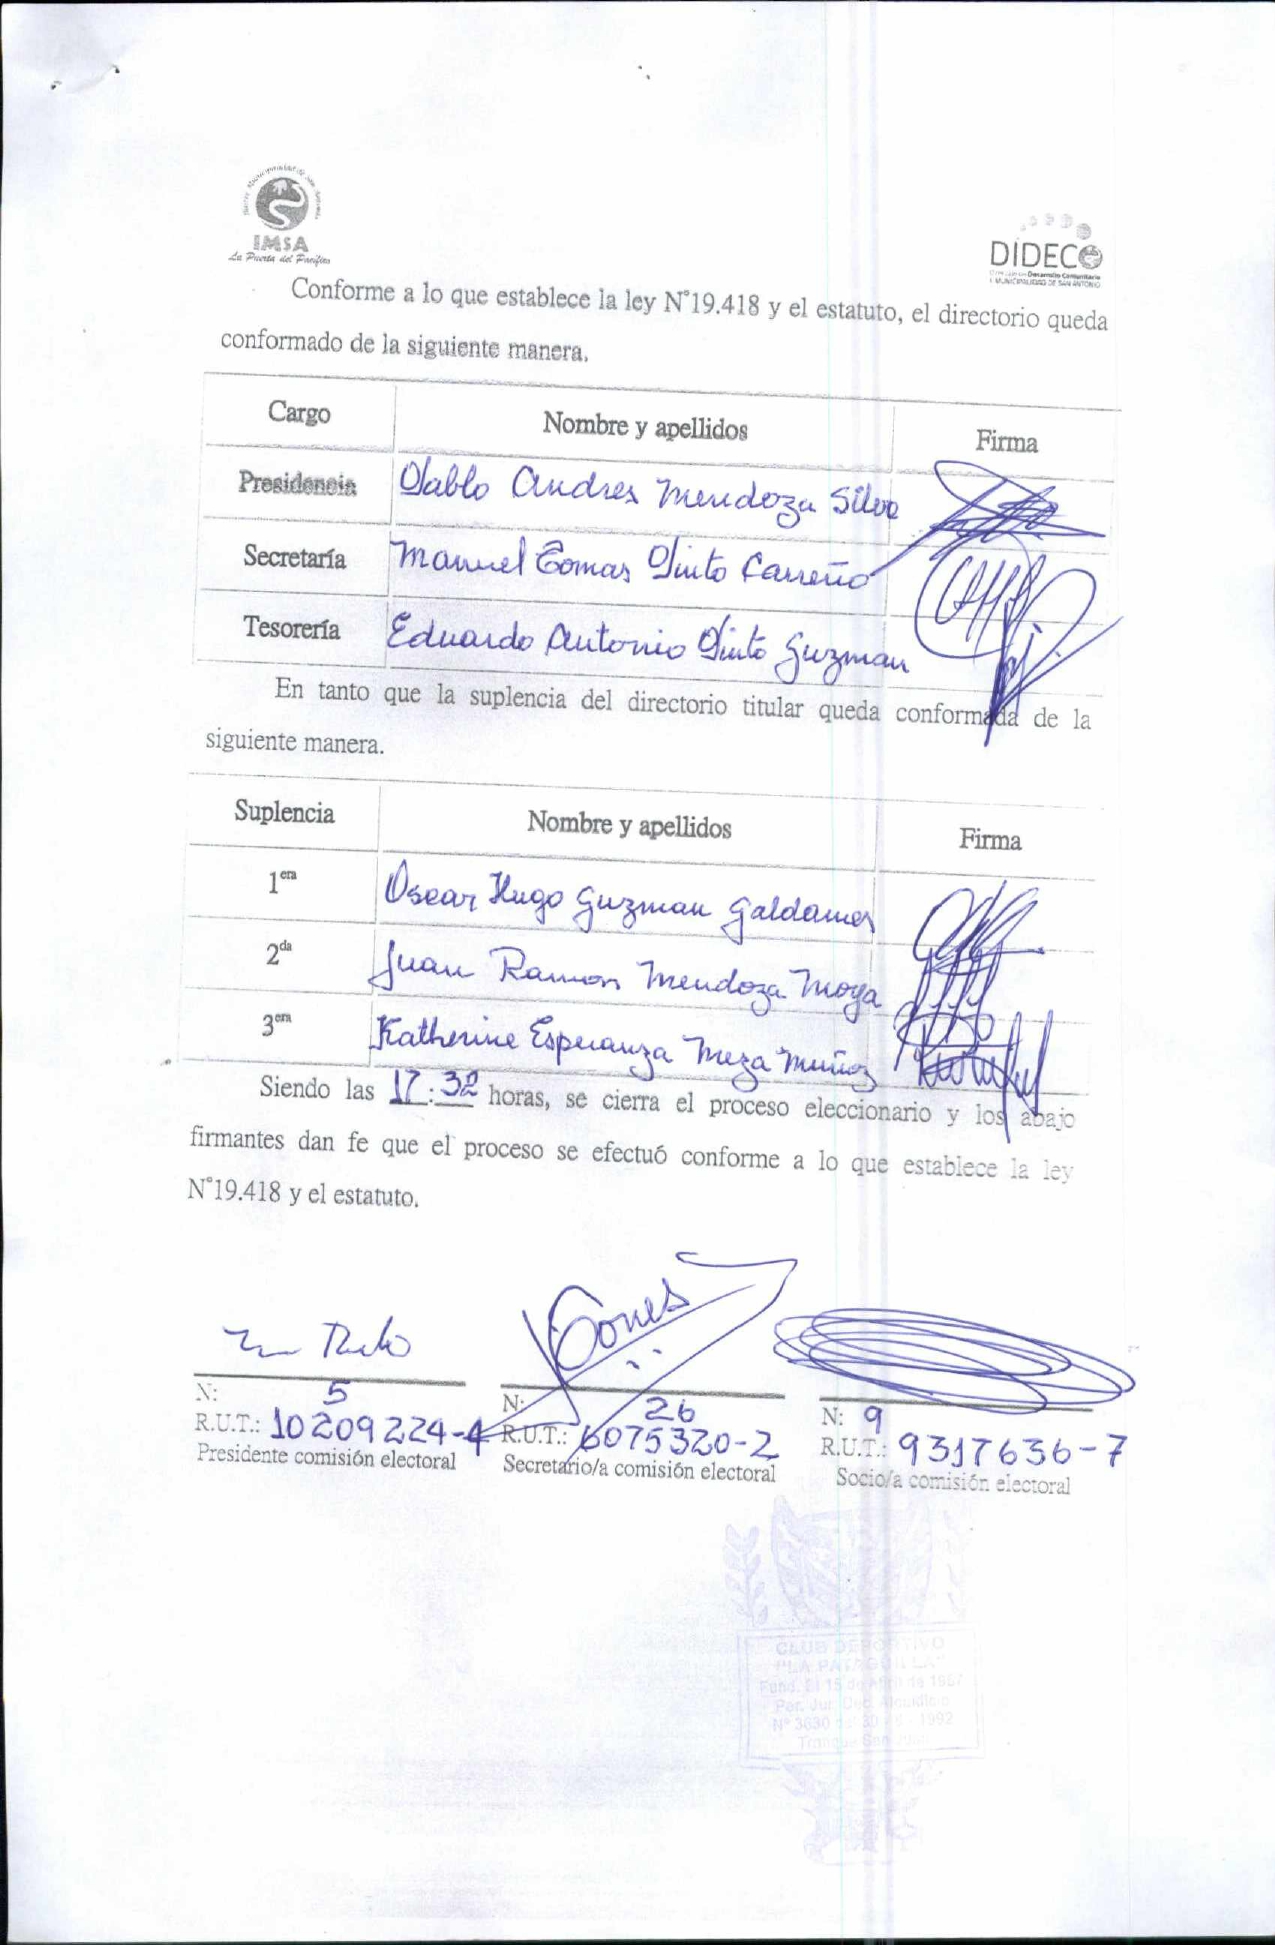 Ilustre Municipalidad de San Antonio
IMSA
La Puerta del Pacífico
DIDECO
Desarrollo Comunitario
I. MUNICIPALIDAD DE SAN ANTONIO
Conforme a lo que establece la ley N°19.418 y el estatuto, el directorio queda
conformado de la siguiente manera.
Cargo Nombre y apellidos Firma
Presidencia Pablo Andres Mendoza Silva
Secretaría Manuel Tomas Pinto Carreño
Tesorería Eduardo Antonio Pinto Guzman
En tanto que la suplencia del directorio titular queda conformada de la
siguiente manera.
Suplencia Nombre y apellidos Firma
1era Oscar Hugo Guzman Galdames
2da Juan Ramon Mendoza Moya
3era Katherine Esperanza Meza Muñoz
Siendo las 17:32 horas, se cierra el proceso eleccionario y los abajo
firmantes dan fe que el proceso se efectuó conforme a lo que establece la ley
N°19.418 y el estatuto.
N: 5 N: 26 N: 9
R.U.T.: 10209224-4 R.U.T.: 6075320-2 R.U.T.: 9317636-7
Presidente comisión electoral Secretario/a comisión electoral Socio/a comisión electoral
CLUB DEPORTIVO
"LA PATAGUILLA"
Fund. El 15 de Abril de 1967
Per. Jur. Dec.
N° 3630 1992